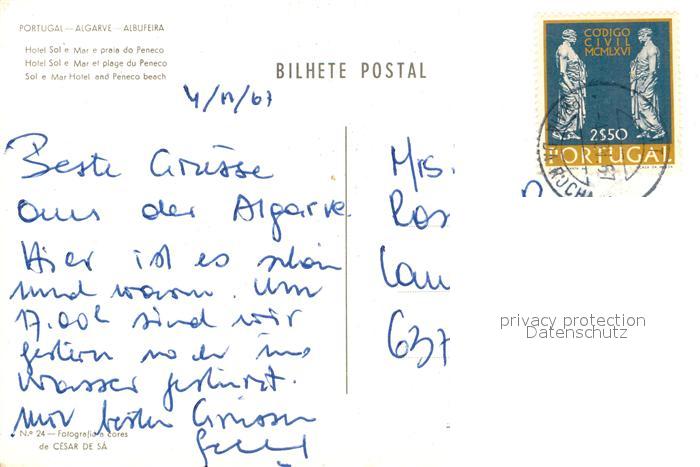 PORTUGAL — ALGARVE — ALBUFEIRA
Hotel Sol e Mar e praia do Peneco
Hotel Sol e Mar et plage du Peneco
Sol e Mar Hotel and Peneco beach
BILHETE POSTAL
CÓDIGO
CIVIL
MCMLXVI
2$50
PORTUGAL
Beste Grüsse
aus der Algarve.
Hier ist es schön
und warm. Um
17.00h sind wir
gestern noch ins
Wasser gestürzt.
Mit besten Grüssen
Mrs.
Ros
Lau
637
privacy protection
Datenschutz
N.º 24 — Fotografia a cores
de CÉSAR DE SÁ